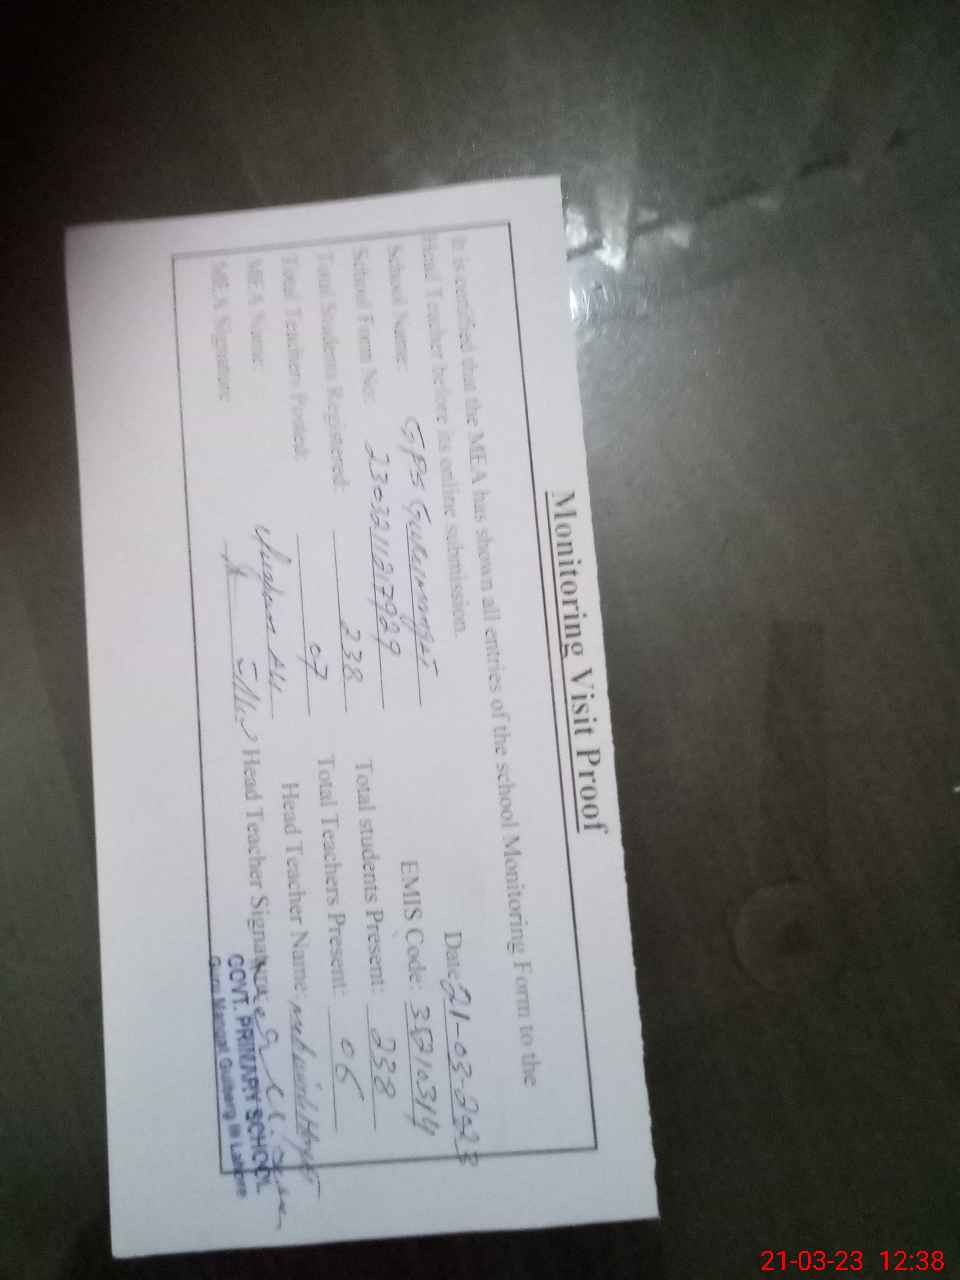 Monitoring Visit Proof
It is certified that the MEA has shown all entries of the school Monitoring Form to the
Head Teacher before its online submission.
Date: 21-03-2023
School Name: GPS
EMIS Code: 35210314
School Form No: 2303211217929
Total students Present: 238
Total Students Registered: 238
Total Teachers Present: 06
Total Teachers Posted: 07
Head Teacher Name:
MEA Name:
Head Teacher Signature:
MEA Signature
GOVT. PRIMARY SCHOOL
Guru Mangat Gulberg III Lahore
21-03-23 12:38